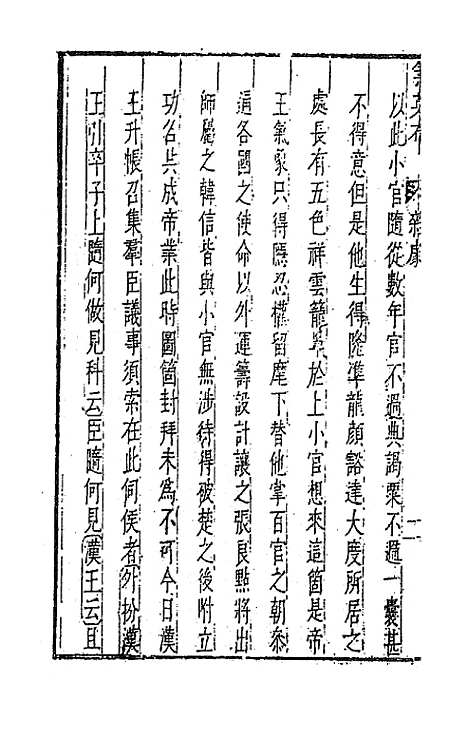 氣英布
雜劇
二
以此小官隨從數年官不過典謁粟不過一囊甚
不得意但是他生得隆準龍顏豁達大度所居之
處長有五色祥雲籠罩於上小官想來這箇是帝
王氣象只得隱忍權留麾下替他掌百官之朝參
通各國之使命以外運籌設計讓之張良點將出
師屬之韓信皆與小官無涉待得破楚之後附立
功名共成帝業此時圖箇封拜未爲不可今日漢
王升帳召集羣臣議事須索在此伺侯者外扮漢
王引卒子上隨何做見科云臣隨何見漢王云且